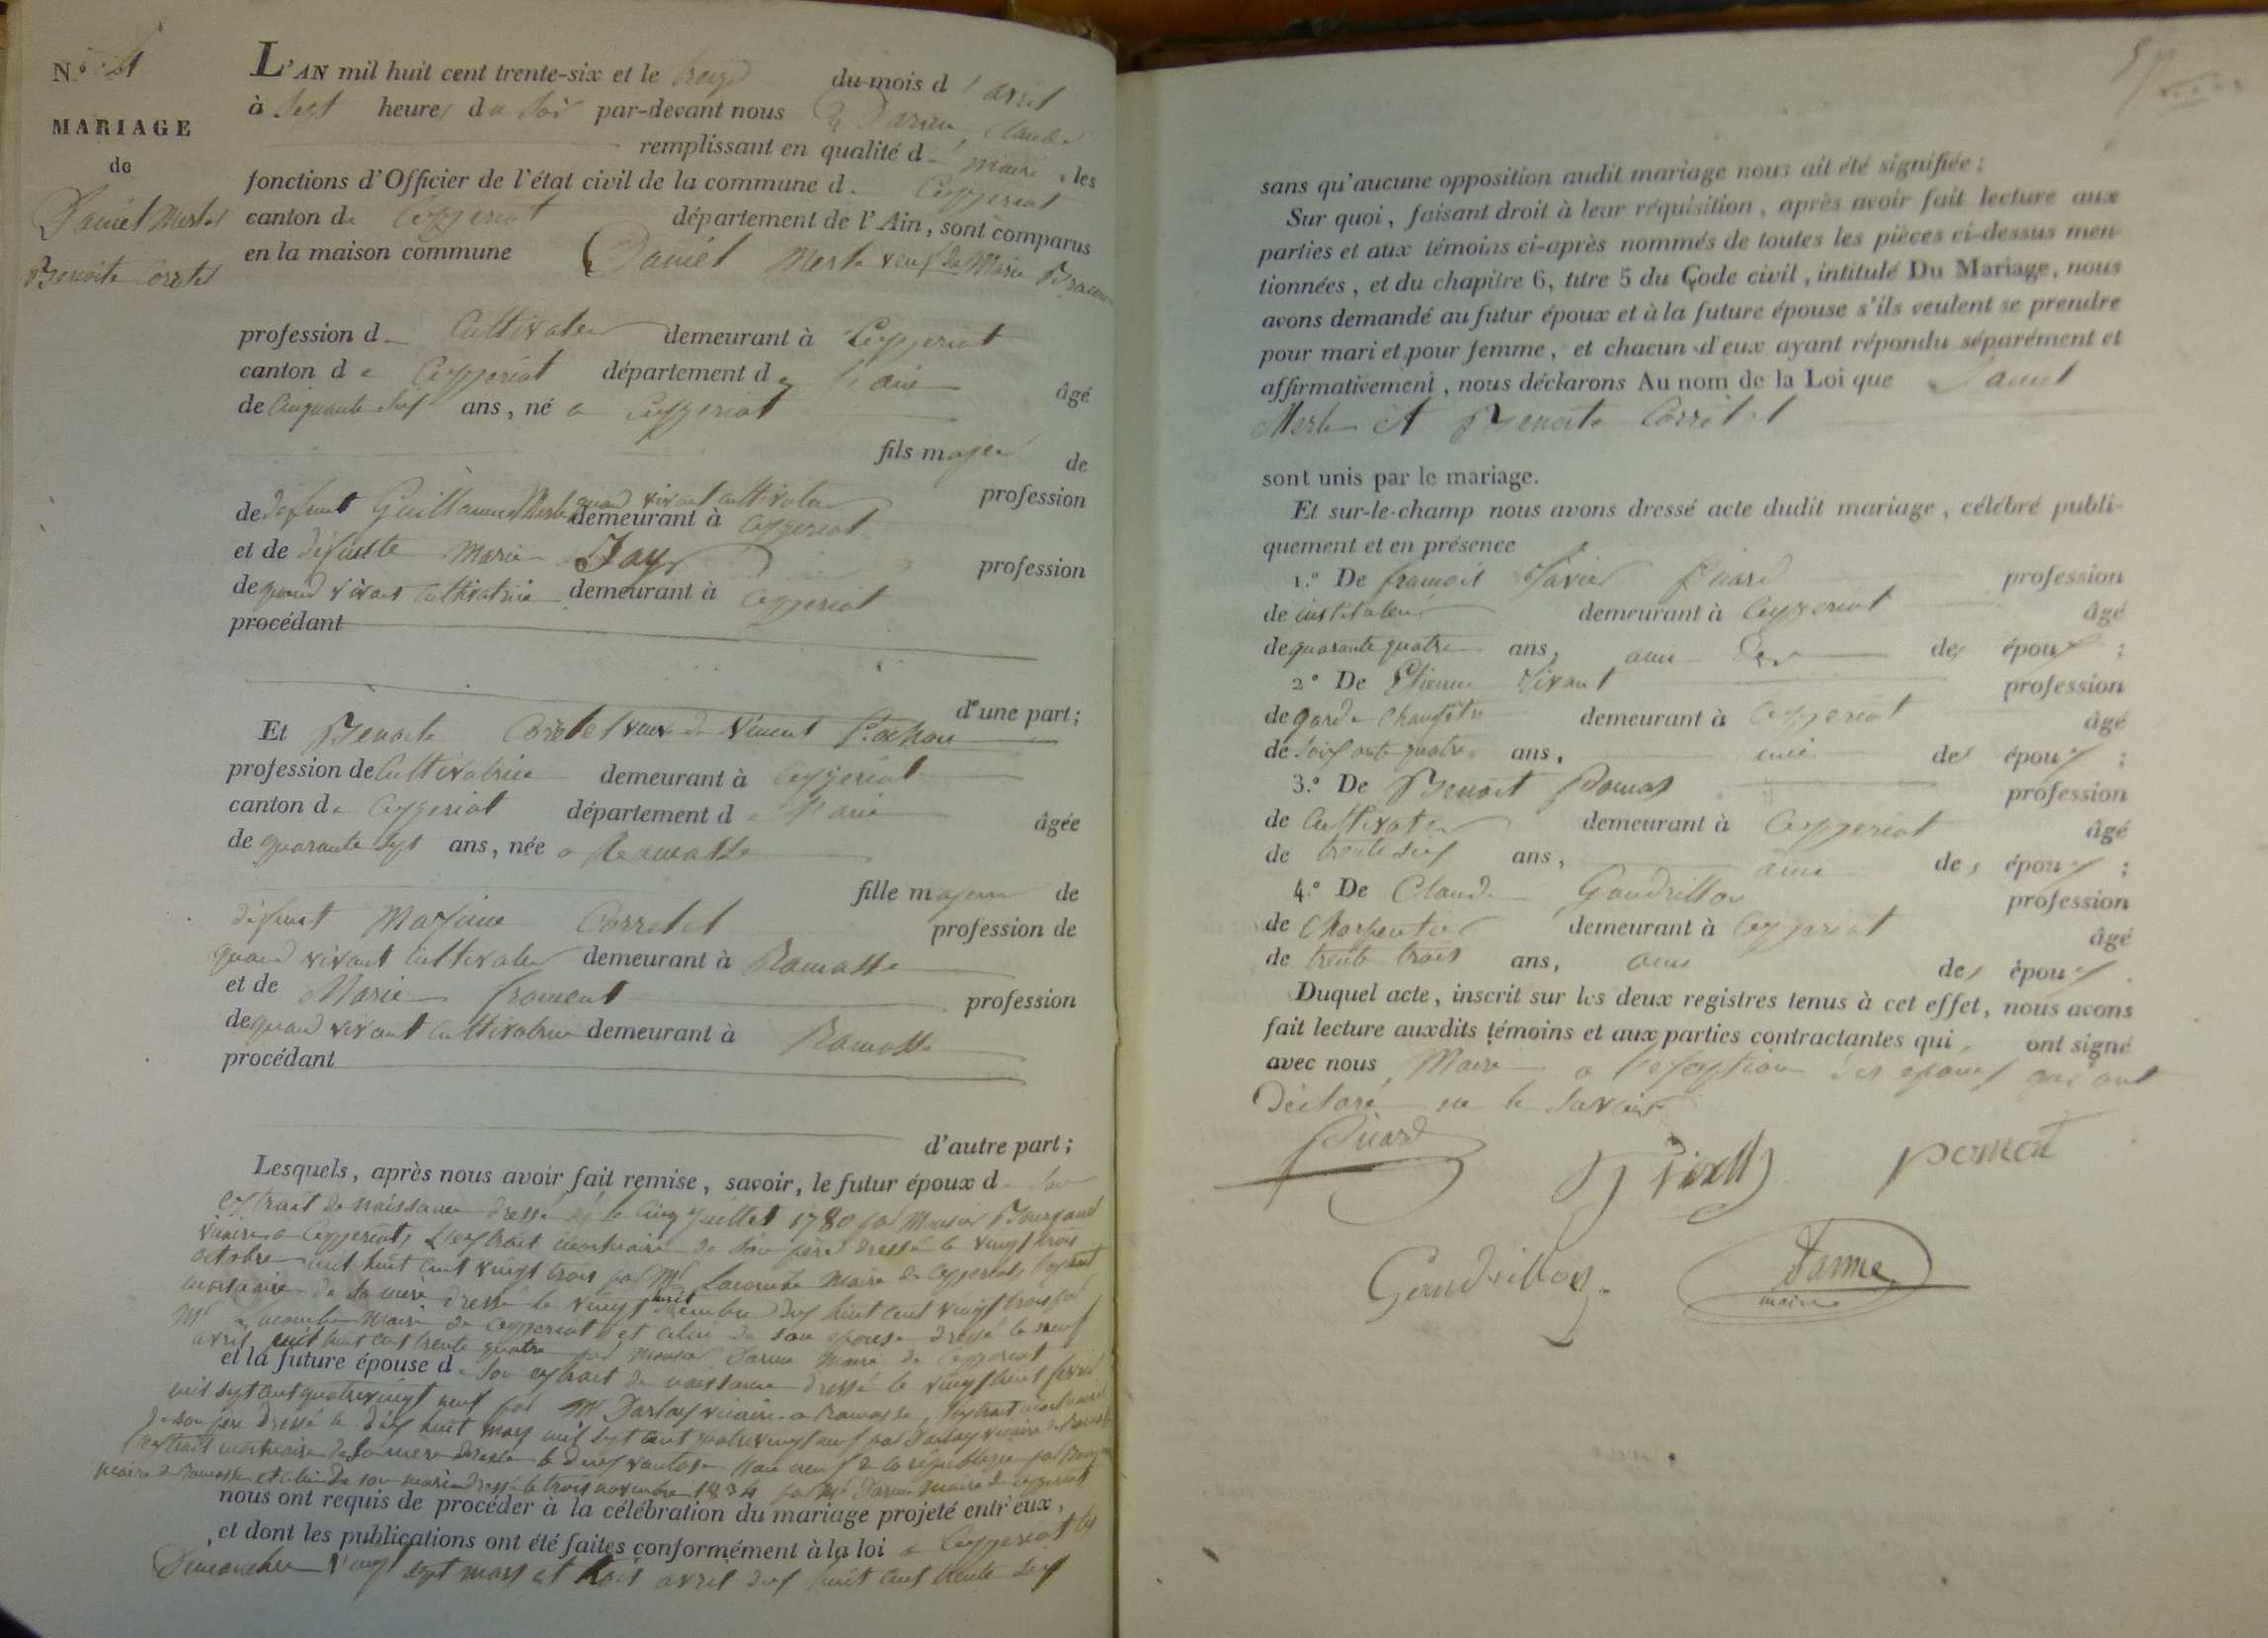 N.º 4
MARIAGE
de
Daniel Merle
Benoite Corretel
L'AN mil huit cent trente-six et le treize du mois d'avril
à sept heures du soir par-devant nous Darme, Claude
remplissant en qualité de maire les
fonctions d'Officier de l'état civil de la commune d. Ceyzeriat
canton de Ceyzeriat département de l'Ain, sont comparus
en la maison commune Daniel Merle veuf de Marie
profession d. Cultivateur demeurant à Ceyzeriat
canton de Ceyzeriat département de l'ain âgé
de Cinquante six ans, né a Ceyzeriat
fils majeur de
défunt Guillaume Merle quand vivant cultivateur profession
de demeurant à Ceyzeriat
et de défunte Marie Jay profession
de quand vivait Cultivatrice demeurant à Ceyzeriat
procédant
d'une part;
Et Benoite Corretel veuve de Vincent Pochon
profession de Cultivatrice demeurant à Ceyzeriat
canton de Ceyzeriat département de l'ain âgée
de quarante sept ans, née a Ramasse
fille majeure de
défunt Maxime Corretel profession de
quand vivait Cultivateur demeurant à Ramasse
et de Marie froment profession
de quand vivant cultivatrice demeurant à Ramasse
procédant
d'autre part;
Lesquels, après nous avoir fait remise, savoir, le futur époux d. son
extrait de naissance dressé le Cinq Juillet 1780 par Monsieur
vicaire a Ceyzeriat, l'extrait mortuaire de son père dressé le vingt trois
octobre mil huit cent vingt trois par Mr Lacombe Maire de Ceyzeriat, l'extrait
mortuaire de sa mère dressé le vingt huit cent vingt trois par
Mr Lacombe Maire de Ceyzeriat et celui de son epouse dressé le neuf
avril mil huit cent trente quatre par Monsieur Darme Maire de Ceyzeriat
et la future épouse d. son extrait de naissance dressé le vingt huit
mil sept cent quatre vingt neuf par Mr vicaire a Ramasse, l'extrait mortuaire
de son père dressé le dix huit mars mil sept cent quatre vingt neuf par vicaire de Ramasse
l'extrait mortuaire de sa mère dressé le dix ventose l'an neuf de la république par
maire de Ramasse et celui de son mari dressé le trois novembre 1834 par Mr Darme Maire de Ceyzeriat
nous ont requis de procéder à la célébration du mariage projeté entr'eux,
et dont les publications ont été faites conformément à la loi a Ceyzeriat les
Dimanches vingt sept mars et trois avril dix huit cent trente six
sans qu'aucune opposition audit mariage nous ait été signifiée;
Sur quoi, faisant droit à leur réquisition, après avoir fait lecture aux
parties et aux témoins ci-après nommés de toutes les pièces ci-dessus men-
tionnées, et du chapitre 6, titre 5 du Code civil, intitulé Du Mariage, nous
avons demandé au futur époux et à la future épouse s'ils veulent se prendre
pour mari et pour femme, et chacun d'eux ayant répondu séparément et
affirmativement, nous déclarons Au nom de la Loi que Daniel
Merle et Benoite Corretel
sont unis par le mariage.
Et sur-le-champ nous avons dressé acte dudit mariage, célébré publi-
quement et en présence
1.º De françois Xavier Picard profession
de instituteur demeurant à Ceyzeriat âgé
de quarante quatre ans, ami des époux;
2º De Etienne Vivant profession
de garde Champêtre demeurant à Ceyzeriat âgé
de soixante quatre ans, ami des époux;
3.º De Benoit Pomat profession
de Cultivateur demeurant à Ceyzeriat âgé
de trente six ans, ami des époux;
4.º De Claude Gaudrillon profession
de Charpentier demeurant à Ceyzeriat âgé
de trente trois ans, ami des époux.
Duquel acte, inscrit sur les deux registres tenus à cet effet, nous avons
fait lecture auxdits témoins et aux parties contractantes qui ont signé
avec nous Maire a l'exception des epoux qui ont
déclaré ne le savoir
Picard
pomat
Gaudrillon
Darme
maire